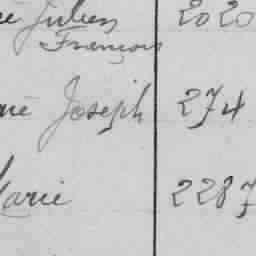 Julien 2020
François
Joseph 274
Marie 2287